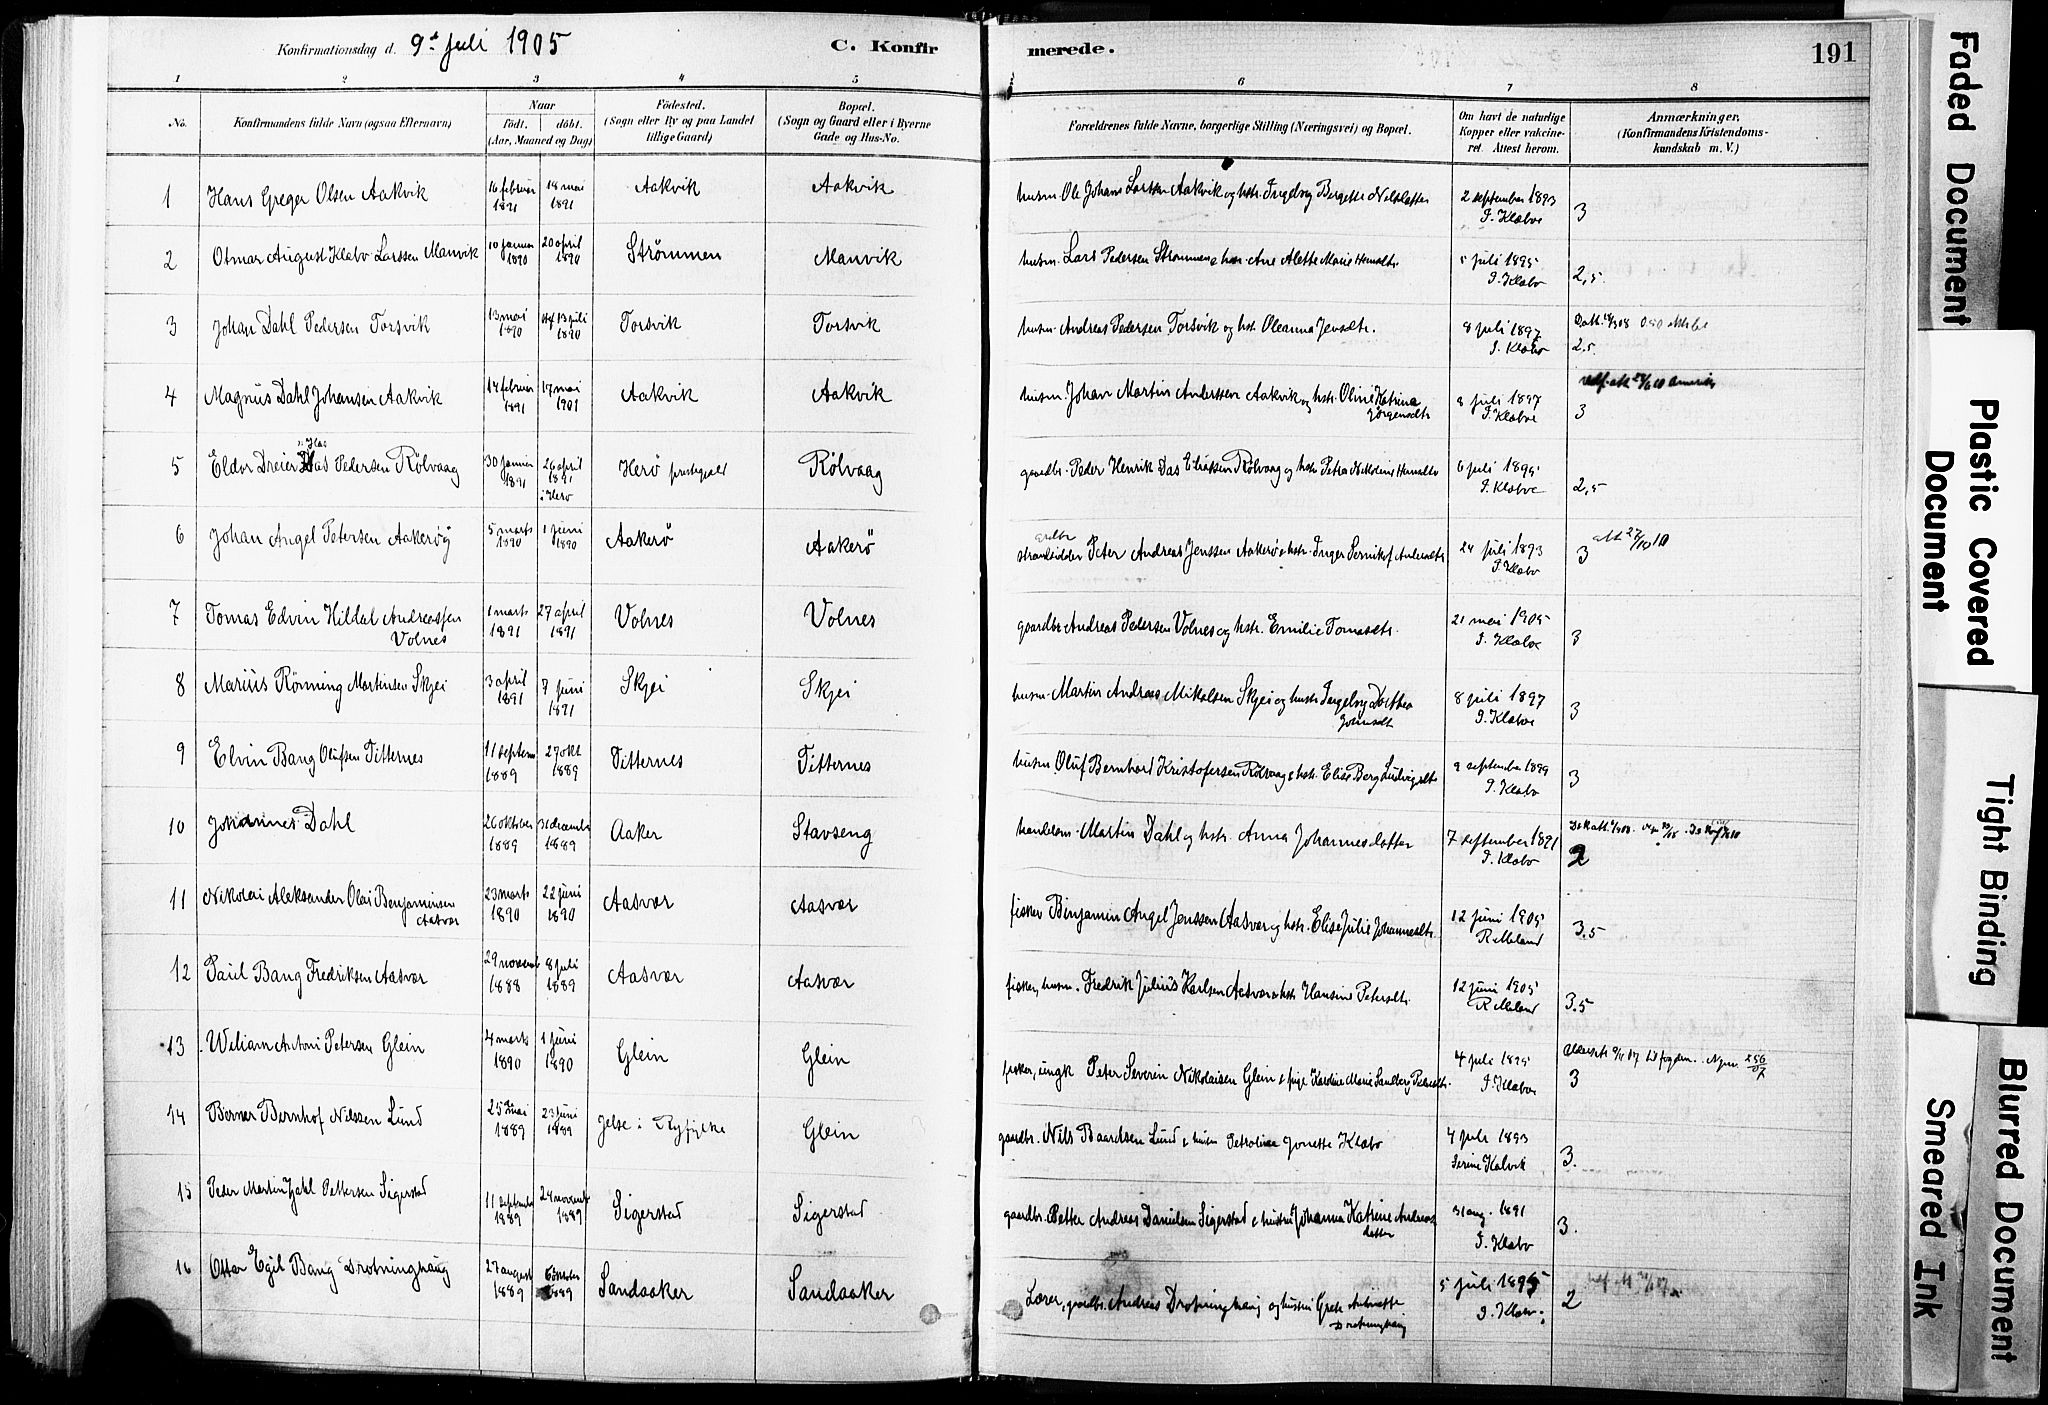 Konfirmationsdag d. 9de Juli 1905
C. Konfirmerede.
191
1 2 3 4 5 6 7 8
No.
Konfirmandens fulde Navn (ogsaa Efternavn)
Naar
født. døbt.
(Aar, Maaned og Dag)
Fødested.
(Sogn eller By og paa Landet
tillige Gaard)
Bopæl.
(Sogn og Gaard eller i Byerne
Gade og Hus-No.
Forældrenes fulde Navne, borgerlige Stilling (Næringsvei) og Bopæl.
Om havt de naturlige
Kopper eller vakcine-
ret. Attest herom.
Anmærkninger.
(Konfirmandens Kristendoms-
kundskab m. V.)
1 Hans Greger Olsen Aakvik 16 februar 1891 18 mai 1891 Aakvik Aakvik husm. Ole Johans Larssen Aakvik og hstr. Ingeborg Bergette Nilsdatter 2 september 1893 I. Klæboe 3
2 Otmar August Klæbo Larssen Manvik 10 januar 1890 20 april 1890 Strømmen Manvik husm. Lars Pedersen Strømmen & hstr. Ane Alette Marie 5 juli 1895 I. Klæbo 2,5.
3 Johan Dahl Pedersen Torsvik 13 mai 1890 13 juli 1890 Torsvik Torsvik husm. Andreas Pedersen Torsvik og hst. Oleanna Jensdtr. 8 juli 1897 I. Klæbo 2.5.
4 Magnus Dahl Johansen Aakvik 17 februar 1891 17 mai 1901 Aakvik Aakvik husm. Johan Martin Anderssen Aakvik og hstr. Oline Katrina Jørgensdtr 8 juli 1897 I. Klæboe 3
5 Eldor Dreier Das Pedersen Rølvaag 30 januar 1891 26 april 1891 i Herø Herø prestegjeld Rølvaag gaardbr. Peder Henrik Das Eliassen Rølvaag og hstr. Petra Nikoline 6 juli 1895 I. Klæboe 2,5
6 Johan Angel Petersen Aakerøy 5 marts 1890 1 juni 1890 Aakerø Aakerø strandsidder Peter Andreas Jenssen Aakerø & hstr. Inger 24 juli 1893 I. Klæbo 3 att. 27/10 10
7 Tomas Edvin Hildal Andreassen Volnes 1 marts 1891 27 april 1891 Volnes Volnes gaardbr. Andreas Pedersen Volnes og hstr. Emilie Tomasdtr. 21 mai 1905 I. Klæboe 3
8 Marius Rønning Martinsen Skjei 3 april 1891 7 juni 1891 Skjei Skjei husm. Martin Andreas Mikalsen Skjei og hustr. Ingeborg Dorthea Johnsdtr 8 juli 1897 I. Klæboe 3
9 Elvin Bang Olufsen Titternes 11 septem 1889 27 okt 1889 Titternes Titternes husm Oluf Bernhard Kristofersen Rølvaag & hstr. Elise Berg Ludvigsdtr 9 september 1899 I. Klæbo 3
10 Johannes Dahl 26 oktober 1889 31 decembr 1889 Aaker Stavseng handelsm. Martin Dahl og hstr. Anna Johannesdatter 7 september 1891 I. Klæbo 2
11 Nikolai Aleksander Olai Benjaminsen Aasvær 23 marts 1890 22 juni 1890 Aasvær Aasvær fisker Benjamin Angel Jenssen Aasvær og hstr. Elise Julie Johannesdtr. 12 juni 1905 R Meland 3.5
12 Paul Bang Fredriksen Aasvær 29 novemb 1888 8 juli 1889 Aasvær Aasvær fisker, husm. Fredrik Julius Karlsen Aasvær & hstr Hansine Petersdtr. 12 juni 1905 R Meland 3.5
13 Wiliam Antoni Petersen Glein 4 marts 1890 1 juni 1890 Glein Glein fisker, ungk Peter Severin Nikolaisen Glein & pige Karoline Marie Sandberg 4 juli 1895 I. Klæboe 3
14 Berner Bernhof Nilssen Lund 25 mai 1889 23 juni 1889 Jelse i Ryfylke Glein gaardbr. Nils Baardsen Lund & hustru Petroline Jonette Klæbo 4 juli 1893 Serine Kalvik 3.
15 Peder Martin Dahl Pettersen Sigerstad 11 septembr 1889 24 novemb 1889 Sigerstad Sigerstad gaardbr. Petter Andreas Danielsen Sigerstad & hustru Johanna Katrine Andreasdatter 31 aug. 1891 I. Klæbo 3.
16 Ottar Egil Bang Drotninghaug 27 august 1889 6 oktober 1889 Sandaaker Sandaaker Lærer, gaardbr. Andreas Drotninghaug og hustru Grete Antonette Drotninghaug 5 juli 1895 I. Klæbo 2
Faded Document
Plastic Covered
Document
Tight Binding
Blurred Document
Smeared Ink